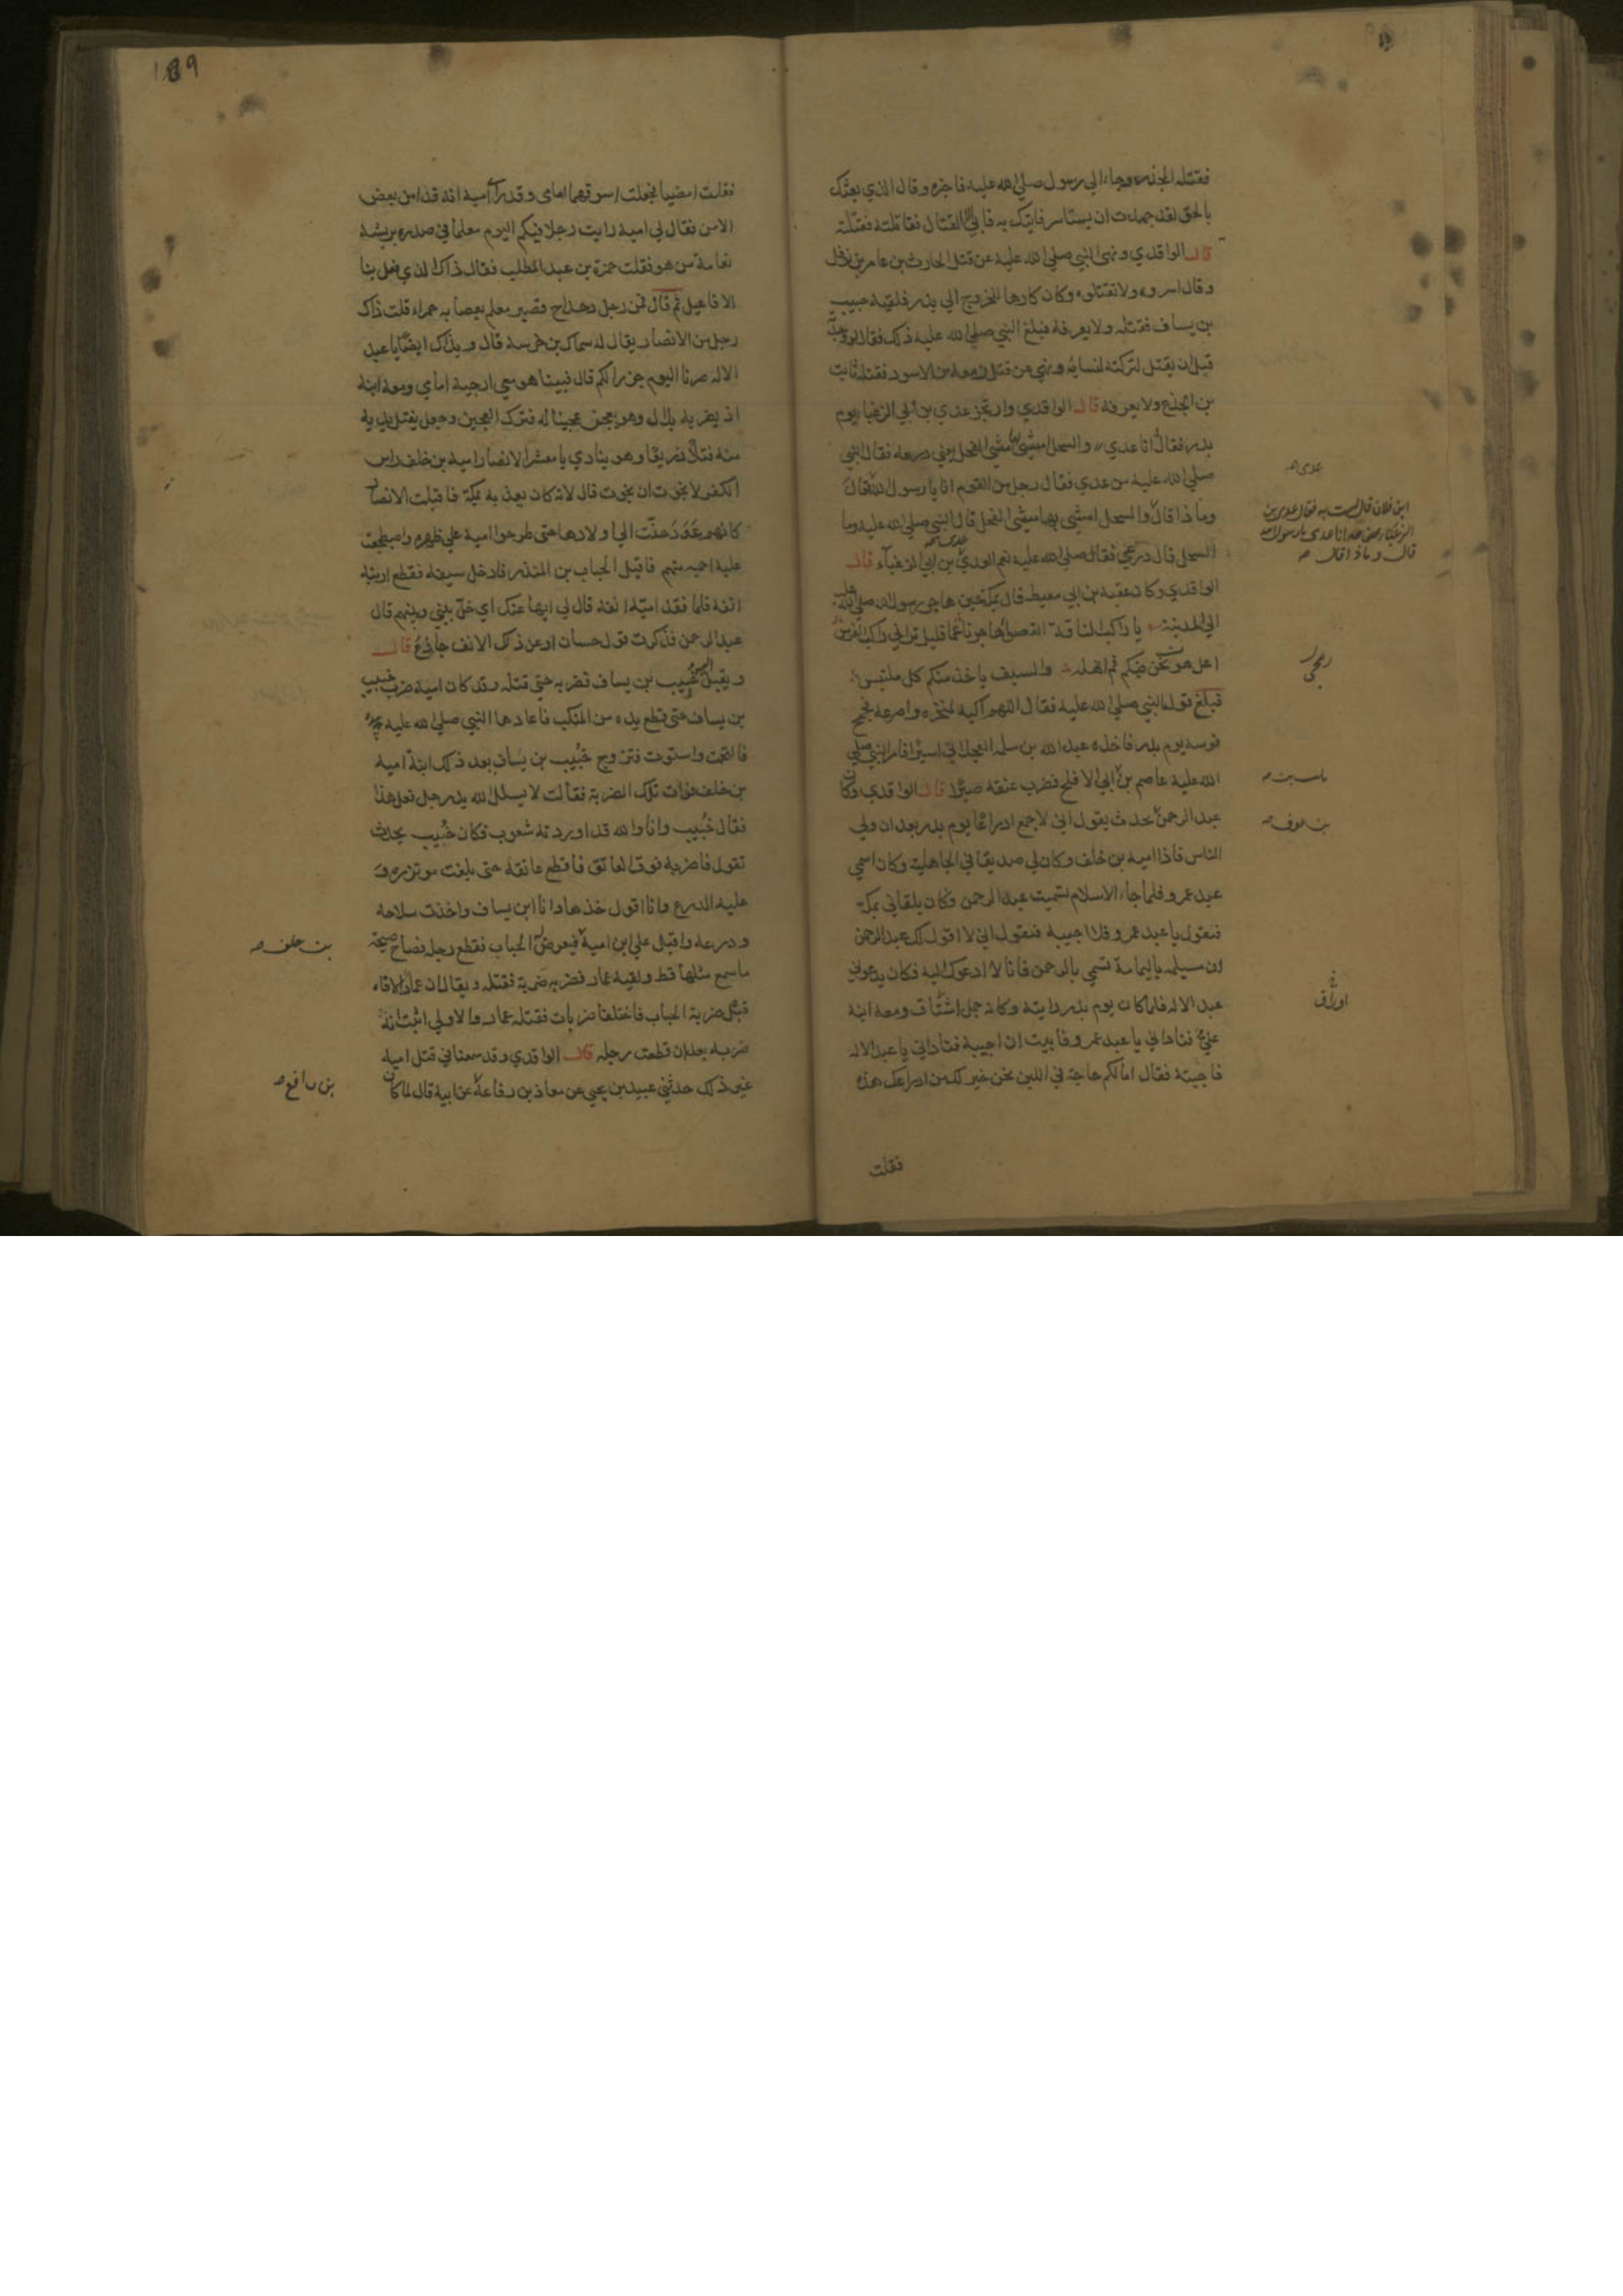 فقتله المجذر وجاء الي رسول صلي الله عليه فاخبره وقال الذي بعثك
بالحق لقد جهدت ان يستاسر فاتيك به فابي الا القتال فقاتلته فقتلته
قال الواقدي ونهي النبي صلي الله عليه عن قتل الحارث بن عامر بن نوفل
وقال اسروه ولا تقتلوه وكان كارها للخروج الي بدر فلقيه خبيب
بن يساف فقتله ولا يعرفه فبلغ النبي صلي الله عليه ذلك فقال لو وجدته
قبل ان يقتل لتركته لنسايه ونهي عن قتل زمعه بن الاسود فقتله ثابت
بن الجذع ولا يعرفه قال الواقدي وارتجز عدي بن ابي الزغباء يوم
بدر فقال انا عدي والسحل امشي بها مشي الفحل يعني درعه فقال النبي
صلي الله عليه من عدي فقال رجل من القوم انا يا رسول الله قال
وما ذا قال والسحل امشي بها مشي الفحل قال النبي صلي الله عليه وما
السحل قال درعي فقال صلي الله عليه نعم العدي بن ابي الزغباء قال
الواقدي وكان عقبة بن ابي معيط قال بمكة حين هاجر رسول الله صلي الله عليه
الي المدينة يا راكب الناقة القصواء هاجرنا عما قليل تراني راكب الفرس
اعل رمحي فيكم ثم انهله والسيف ياخذ منكم كل ملتبس
فبلغ قوله النبي صلي الله عليه فقال اللهم اكبه لمنخره واصرعه فجمح
فرسه يوم بدر فاخذه عبد الله بن سلمه العجلاني اسيرا فامر النبي صلي
الله عليه عاصم بن ابي الافلح فضرب عنقه صبرا قال الواقدي وكان
عبد الرحمن يحدث يقول اني لاجمع ادراعا يوم بدر بعد ان ولي
الناس فاذا اميه بن خلف وكان لي صديقا في الجاهلية وكان اسمي
عبد عمرو فلما جاء الاسلام تسميت عبد الرحمن فكان يلقاني بمكة
فيقول يا عبد عمرو فلا اجيبه فيقول اني لا اقول لك عبد الرحمن
ان مسيلمه باليمامة تسمي بالرحمن فانا لا ادعوك اليه فكان يدعوني
عبد الاله فلما كان يوم بدر رايته وكانه جمل ومعه ابنه
علي فناداني يا عبد عمرو فابيت ان اجيبه فناداني يا عبد الاله
فاجبته فقال اما لكم حاجة في اللبن نحن خير لك من ادراعك هذه
فقلت
عدي
ابن فلان قال لست به فقال عدي بن
الزغباء انا عدي يا رسول الله
قال وماذا قال
رمحي
ثابت بن
بن عوف
اورق
189
فقلت امضيا فجعلت اسوقهما امامي وقد راي امية انه قد امن بعض
الامن فقال لي امية رايت رجلا فيكم اليوم معلما في صدره بريشة
نعامة من هو فقلت حمزة بن عبد المطلب فقال ذاك الذي فعل بنا
الافاعيل ثم قال فمن رجل دحداح قصير معلم بعصابه حمراء قلت ذاك
رجل من الانصار يقال له سماك بن خرشه قال وبذاك ايضا يا عبد
الاله صرنا اليوم جزرا لكم قال فبينا هو معي ازجيه امامي ومعه ابنه
اذ بصر به بلال وهو يعجن عجينا له فترك العجين وجعل يفتل يديه
منه فتلا ذريعا وهو ينادي يا معشر الانصار امية بن خلف راس
الكفر لا نجوت ان نجوت قال لانه كان يعذبه بمكة فاقبلت الانصار
كانهم عوذ حنت الي اولادها حتي طرحوا امية علي ظهره واضطجعت
عليه احميه منهم فاقبل الحباب بن المنذر فادخل سيفه فقطع ارنبة
انفه فلما فقد امية انفه قال لي ايها عنك اي خل بيني وبينهم قال
عبد الرحمن فذكرت قول حسان او عن ذلك الانف جادع قال
ويقبل اليه خبيب بن يساف فضربه حتي قتله وقد كان امية ضرب خبيب
بن يساف حتي قطع يده من المنكب فاعادها النبي صلي الله عليه
فالتحمت واستوت فتزوج خبيب بن يساف بعد ذلك ابنة امية
بن خلف فرات تلك الضربة فقالت لا يشلل الله يد رجل فعل هذا
فقال خبيب وانا والله قد اوردته شعوب فكان خبيب يحدث
يقول فاضربه فوق العاتق فاقطع عاتقه حتي بلغت موتزره و
عليه الدرع وانا اقول خذها وانا ابن يساف واخذت سلاحه
ودرعه واقبل علي ابن امية فيعرض له الحباب فقطع رجله فصاح صيحة
ما سمع مثلها قط ولقيه عمار فضربه ضربة فقتله ويقال ان عمارا لاقاه
قبل ضربة الحباب فاختلفا ضربات فقتله عمار والاولي اثبت انه
ضربه بعد ان قطعت رجله قال الواقدي وقد سمعنا في قتل امية
غير ذلك حدثني عبيد بن يحيي عن معاذ بن رفاعة عن ابيه قال لما كان
بن خلف
بن رافع